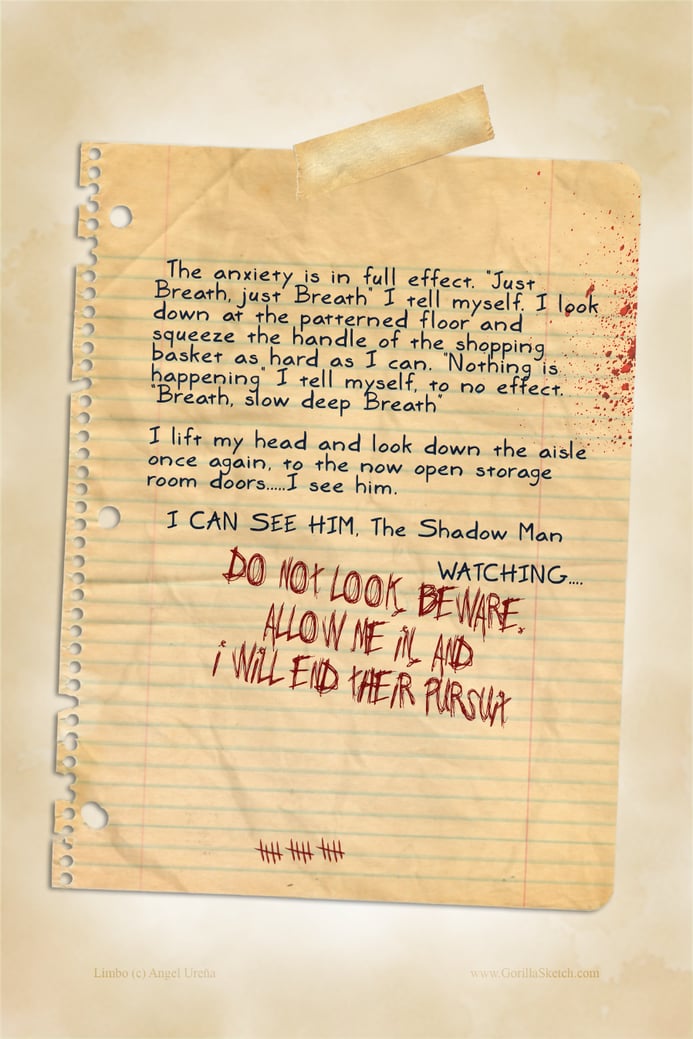 The anxiety is in full effect. "Just
Breath, just Breath" I tell myself. I look
down at the patterned floor and
squeeze the handle of the shopping
basket as hard as I can. "Nothing is
happening" I tell myself, to no effect.
"Breath, slow deep Breath"
I lift my head and look down the aisle
once again, to the now open storage
room doors.....I see him.
I CAN SEE HIM, The Shadow Man
WATCHING....
DO NOt LOOK, BEWARE,
ALLOW ME iN, AND
i WiLL END tHEiR PURSUit
Limbo (c) Angel Ureña
www.GorillaSketch.com